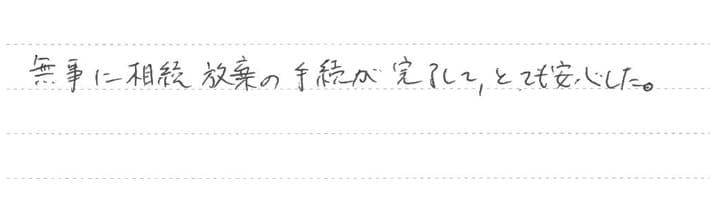 無事に相続放棄の手続が完了して、とても安心した。